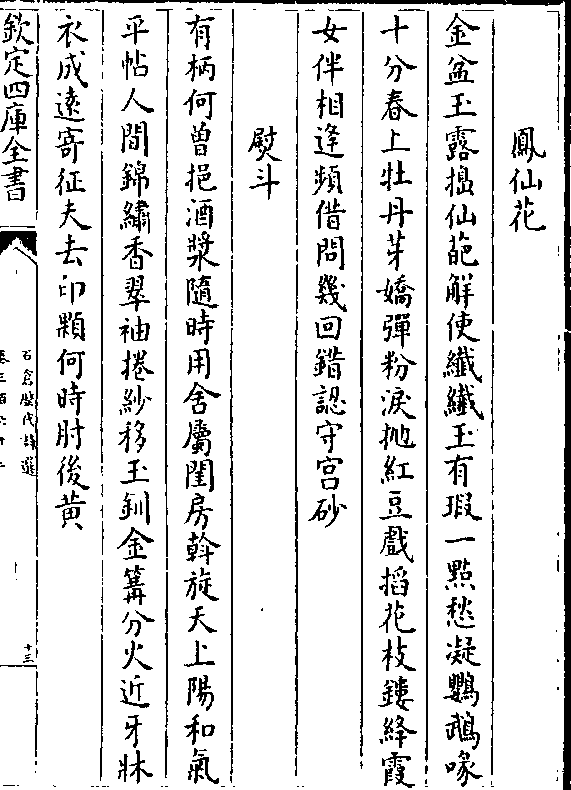 鳳仙花
金盆玉露搗仙葩解使纖纖玉有瑕一點愁凝鸚鵡喙
十分春上牡丹芽嬌彈粉淚抛紅豆戲搯花枝鏤絳霞
女伴相逢頻借問幾回錯認守宫砂
熨斗
有柄何曾挹酒漿隨時用舍屬閨房斡旋天上陽和氣
平帖人間錦繡香翠袖捲紗移玉釧金篝分火近牙牀
衣成遠寄征夫去印顆何時肘後黄
欽定四庫全書
石倉歷代詩選
十三